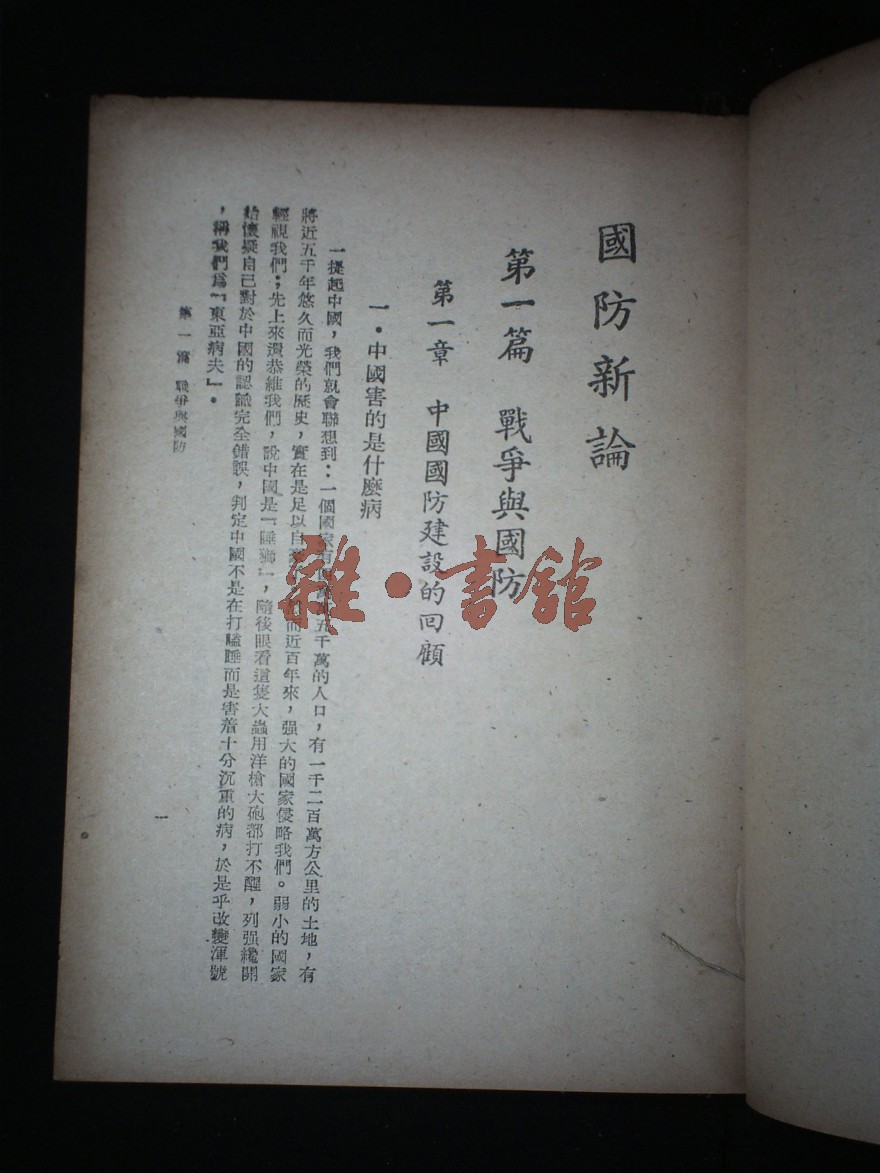 國防新論
第一篇 戰爭與國防
第一章 中國國防建設的回顧
一・中國害的是什麼病
一提起中國，我們就會聯想到：一個國家有 五千萬的人口，有一千二百萬方公里的土地，有
將近五千年悠久而光榮的歷史，實在是足以自 而近百年來，强大的國家侵略我們。弱小的國家
輕視我們；先上來還恭維我們，說中國是『睡獅』，隨後眼看這隻大蟲用洋槍大砲都打不醒，列强纔開
始懷疑自己對於中國的認識完全錯誤，判定中國不是在打瞌睡而是害着十分沉重的病，於是乎改變渾號
，稱我們爲『東亞病夫』。
第一篇 戰爭與國防
一
雜・書館